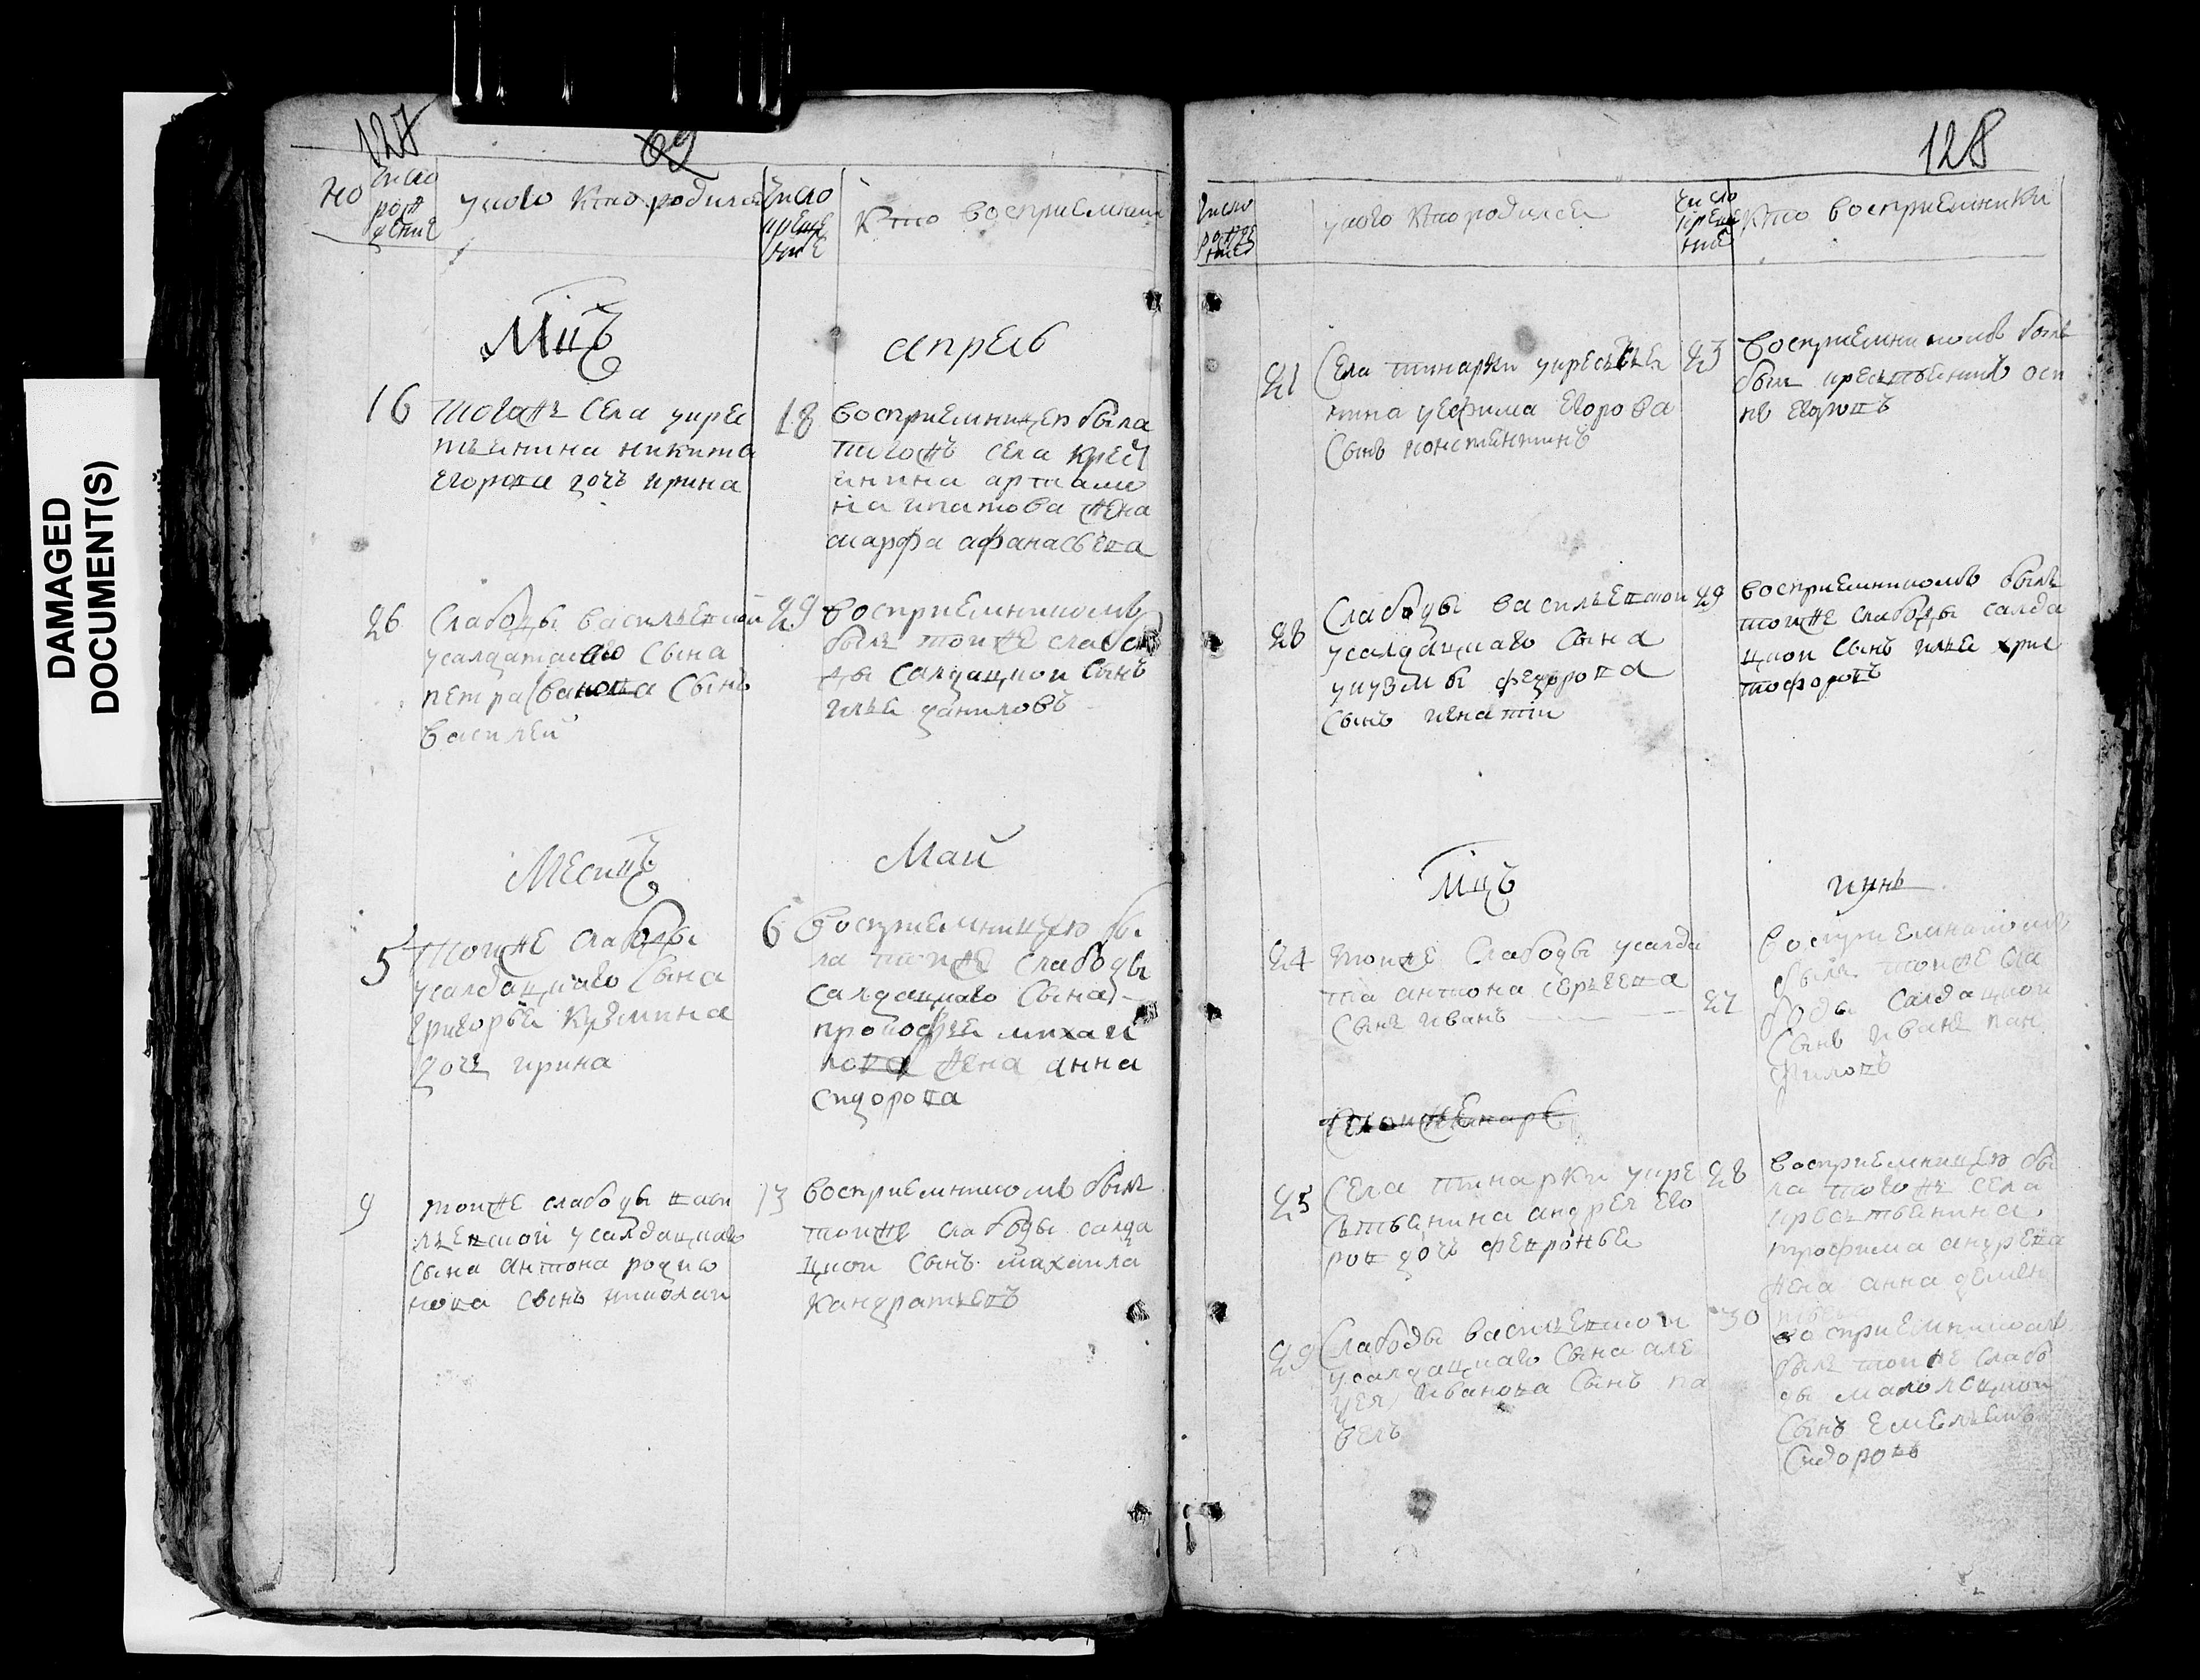 DAMAGED
DOCUMENT(S)
127
69
но
число
рож
дение
у ково кто родился
число
креще
ние
кто восприемник
Мцъ
апрель
16
тогожъ села у крес
тьенина никита
егорова дочь ирина
18
восприемницею была
тогожъ села крест
енина артамо
на ипатова жена
марфа афанасьева
26
Слабоды васильевской
у салдатскаго сына
петра иванова сынъ
василей
29
восприемникомъ
былъ тойже слабо
ды салдацкой сынъ
илья даниловъ
Месицъ
Май
5
тойже слабоды
у салдацкаго сына
григорья кузмина
дочь ирина
6
восприемницею бы
ла тойже слабоды
салдацкаго сына
прокофья михай
лова жена анна
сидорова
9
тойже слабоды васи
льевской у салдацкаго
сына антона родио
нова сынъ николай
13
восприемникомъ былъ
тойже слабоды салда
цкой сынъ михаила
кандратьевъ
128
число
рожде
ние
у ково кто родился
число
креще
ние
кто восприемники
21
Села шинарки у кресьтье
нина уефима егорова
сынъ констентинъ
23
восприемникомъ былъ
былъ крестьенинъ оси
пъ егоровъ
28
Слабоды васильевской
у салдацкаго сына
у кузмы федорова
сынъ игнатий
29
восприемникомъ былъ
тойже слабоды салда
цкой сынъ илья хрис
тофоровъ
Мцъ
июнь
24
тойже Слабоды у салда
та антона сергеева
сынъ иванъ
27
восприемникомъ
былъ тойже сла
боды салдацкой
сынъ иванъ пан
филовъ
25
Села шинарки у кре
сьтьенина андрея его
ров дочь февронья
28
восприемницею бы
ла тогожъ села
кресьтьенина
трофима андреева
жена анна демен
тьева
29
Слабоды васильевской
у салдацкаго сына але
ксея иванова сынъ па
велъ
30
восприемникомъ
былъ тойже слабо
ды малолецкой
сынъ емельянъ
Сидоровъ